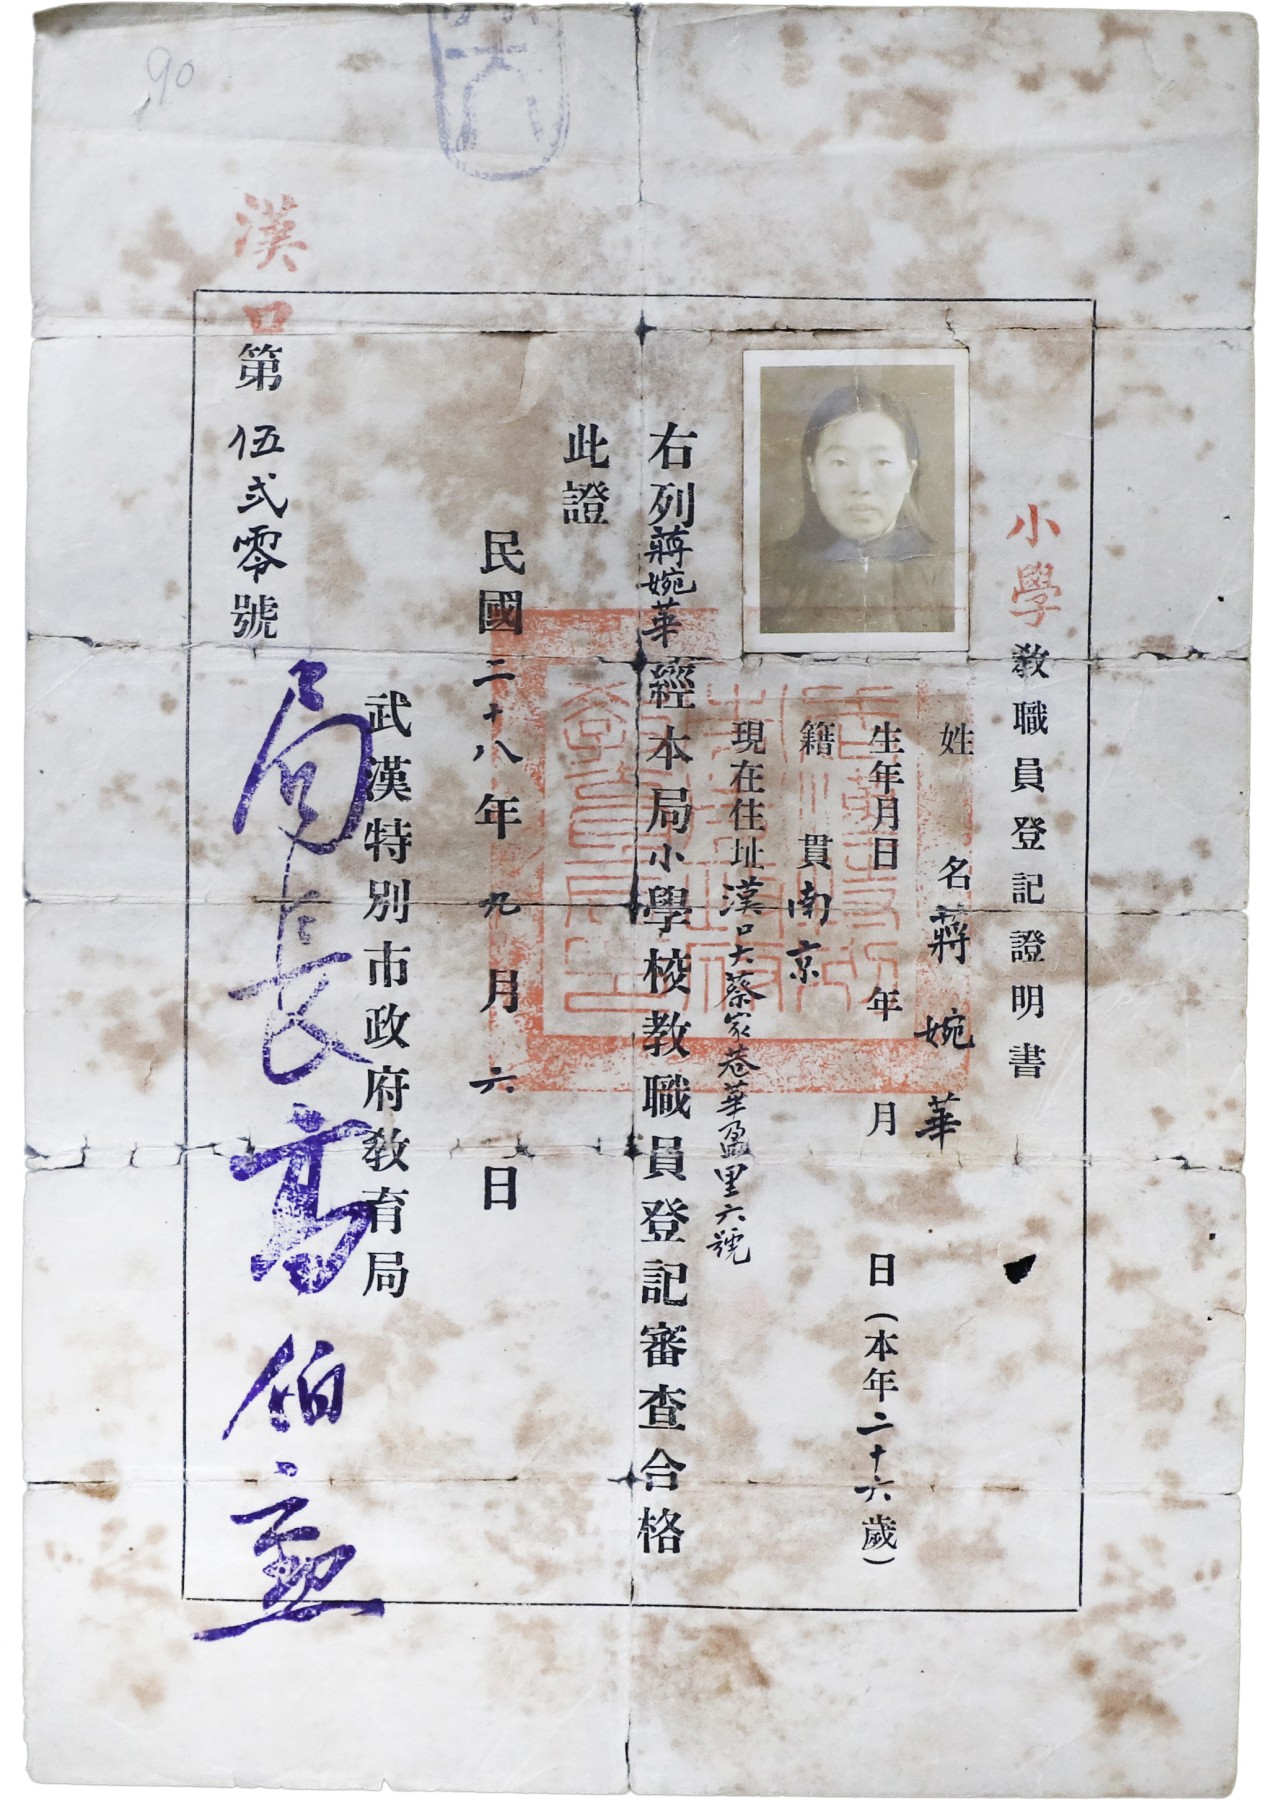 小學教職員登記證明書
姓名 蔣婉華
生年月日 年 月 日(本年二十六歲)
籍貫 南京
現在住址 漢口大蔡家巷華盈里六號
右列蔣婉華經本局小學校教職員登記審查合格
此證
民國二十八年九月六日
武漢特別市政府教育局
局長高伯勳
漢口第伍弍零號
90